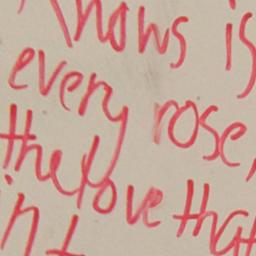 knows is
every rose,
the love that
int